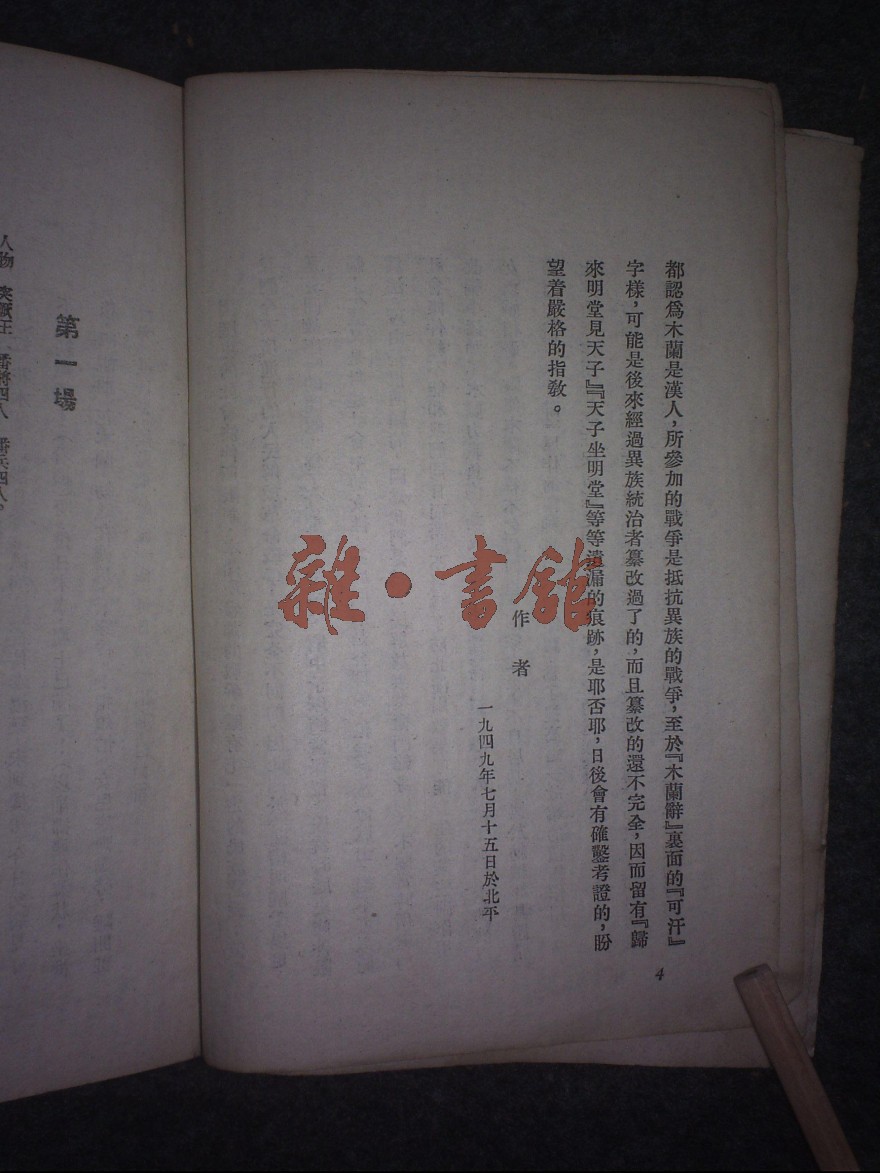 都認爲木蘭是漢人，所參加的戰爭是抵抗異族的戰爭，至於『木蘭辭』裏面的『可汗』
字樣，可能是後來經過異族統治者纂改過了的，而且纂改的還不完全，因而留有『歸
來明堂見天子』『天子坐明堂』等等遺漏的痕跡，是耶否耶，日後會有確鑿考證的，盼
望着嚴格的指教。
作者
一九四九年七月十五日於北平
4
雜·書館
第一場
人物 突厥王 番將四人 番兵四人。